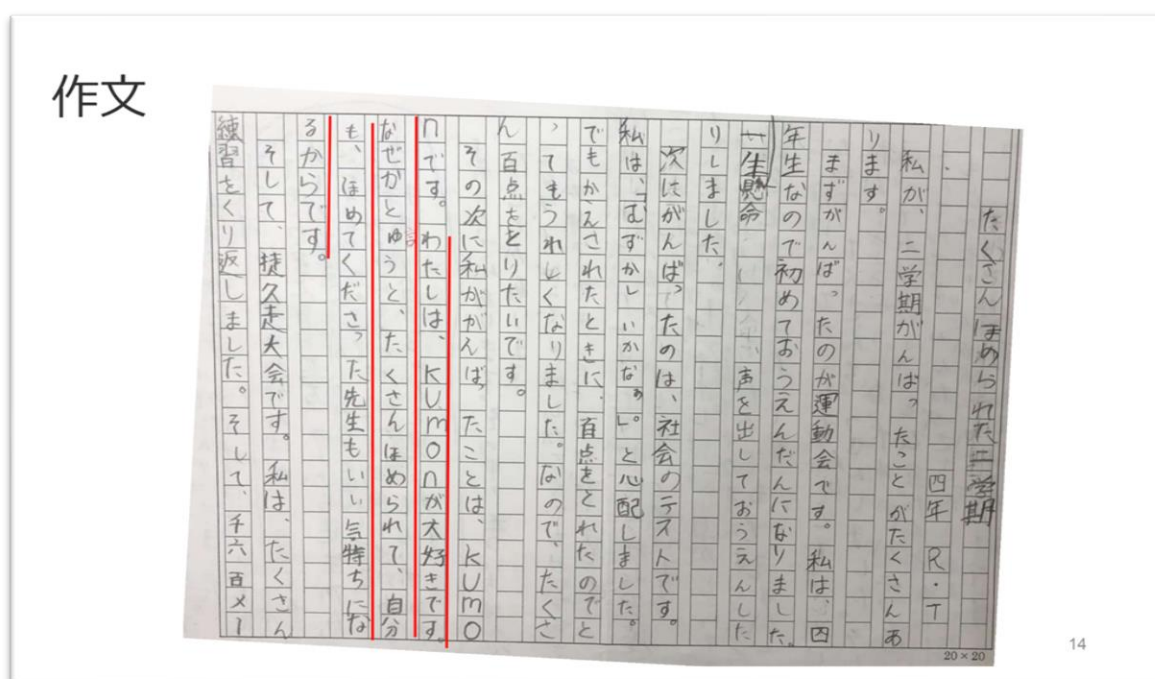 作文
たくさんほめられた二学期
四年 R・T
私が、二学期がんばったことがたくさんあ
ります。
まずがんばったのが運動会です。私は、四
年生なので初めておうえんだんになりました。
一生懸命 声を出しておうえんした
りしました。
次にがんばったのは、社会のテストです。
私は、「むずかしいかなぁ。」と心配しました。
でもかえされたときに、百点をとれたのでと
ってもうれしくなりました。なので、たくさ
ん百点をとりたいです。
その次に私ががんばったことは、KUmO
nです。わたしは、KUmOnが大好きです。
なぜかとゆうと、たくさんほめられて、自分
言
も、ほめてくださった先生もいい気持ちにな
るからです。
そして、持久走大会です。私は、たくさん
練習をくり返しました。そして、千六百メー
20×20
14